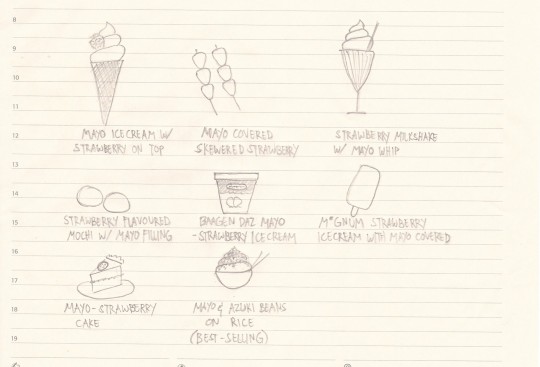 8
9
10
11
12
13
14
15
16
17
18
19
MAYO ICECREAM W/
STRAWBERRY ON TOP
MAYO COVERED
SKEWERED STRAWBERRY
STRAWBERRY MILKSHAKE
W/ MAYO WHIP
STRAWBERRY FLAVOURED
MOCHI W/ MAYO FILLING
HAAGEN DAZ MAYO
-STRAWBERRY ICECREAM
M*GNUM STRAWBERRY
ICECREAM WITH MAYO COVERED
MAYO-STRAWBERRY
CAKE
MAYO & AZUKI BEANS
ON RICE
(BEST-SELLING)